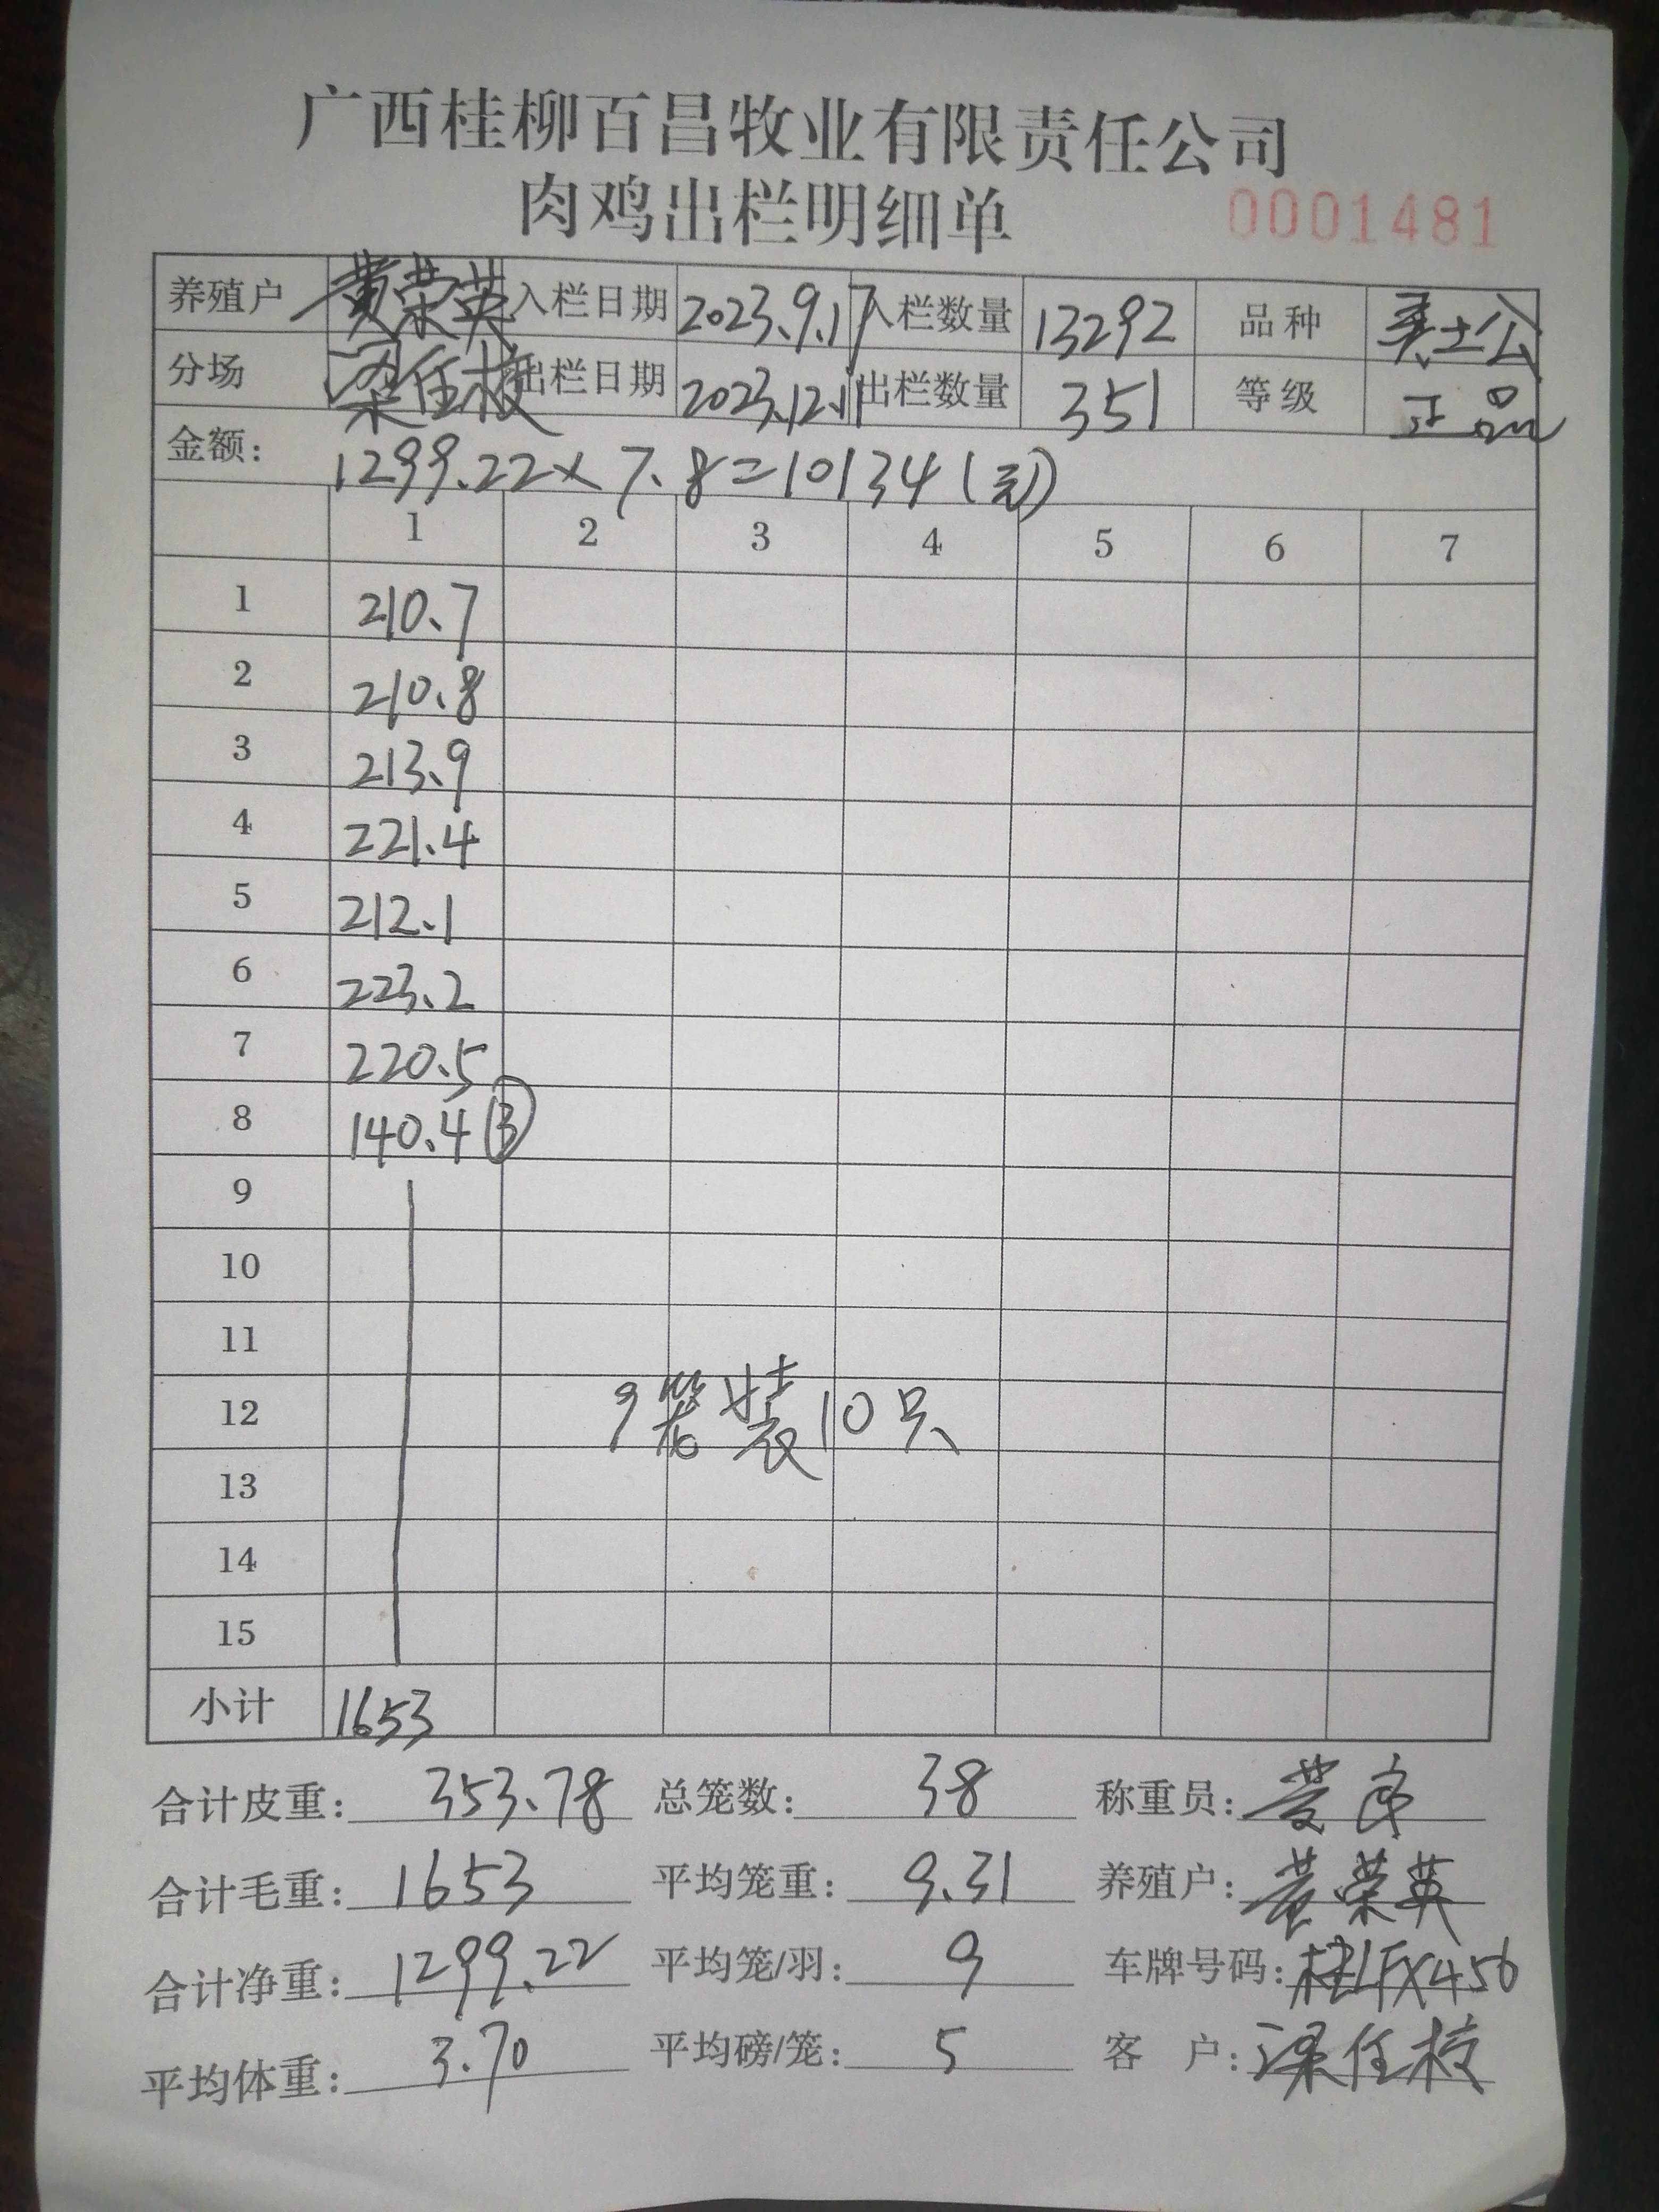 广西桂柳百昌牧业有限责任公司
肉鸡出栏明细单 0001481
养殖户 黄荣英 入栏日期 2023.9.17 入栏数量 13292 品种 土公
分场 梁任校 出栏日期 2023.12.11 出栏数量 351 等级 正品
金额: 1299.22×7.8=10134(元)
1 2 3 4 5 6 7
1 210.7
2 210.8
3 213.9
4 221.4
5 212.1
6 223.2
7 220.5
8 140.4 ③
9
10
11
12 9笼装10只
13
14
15
小计 1653
合计皮重: 353.78 总笼数: 38 称重员:
合计毛重: 1653 平均笼重: 9.31 养殖户: 黄荣英
合计净重: 1299.22 平均笼/羽: 9 车牌号码: 桂LFX456
平均体重: 3.70 平均磅/笼: 5 客 户: 梁任校